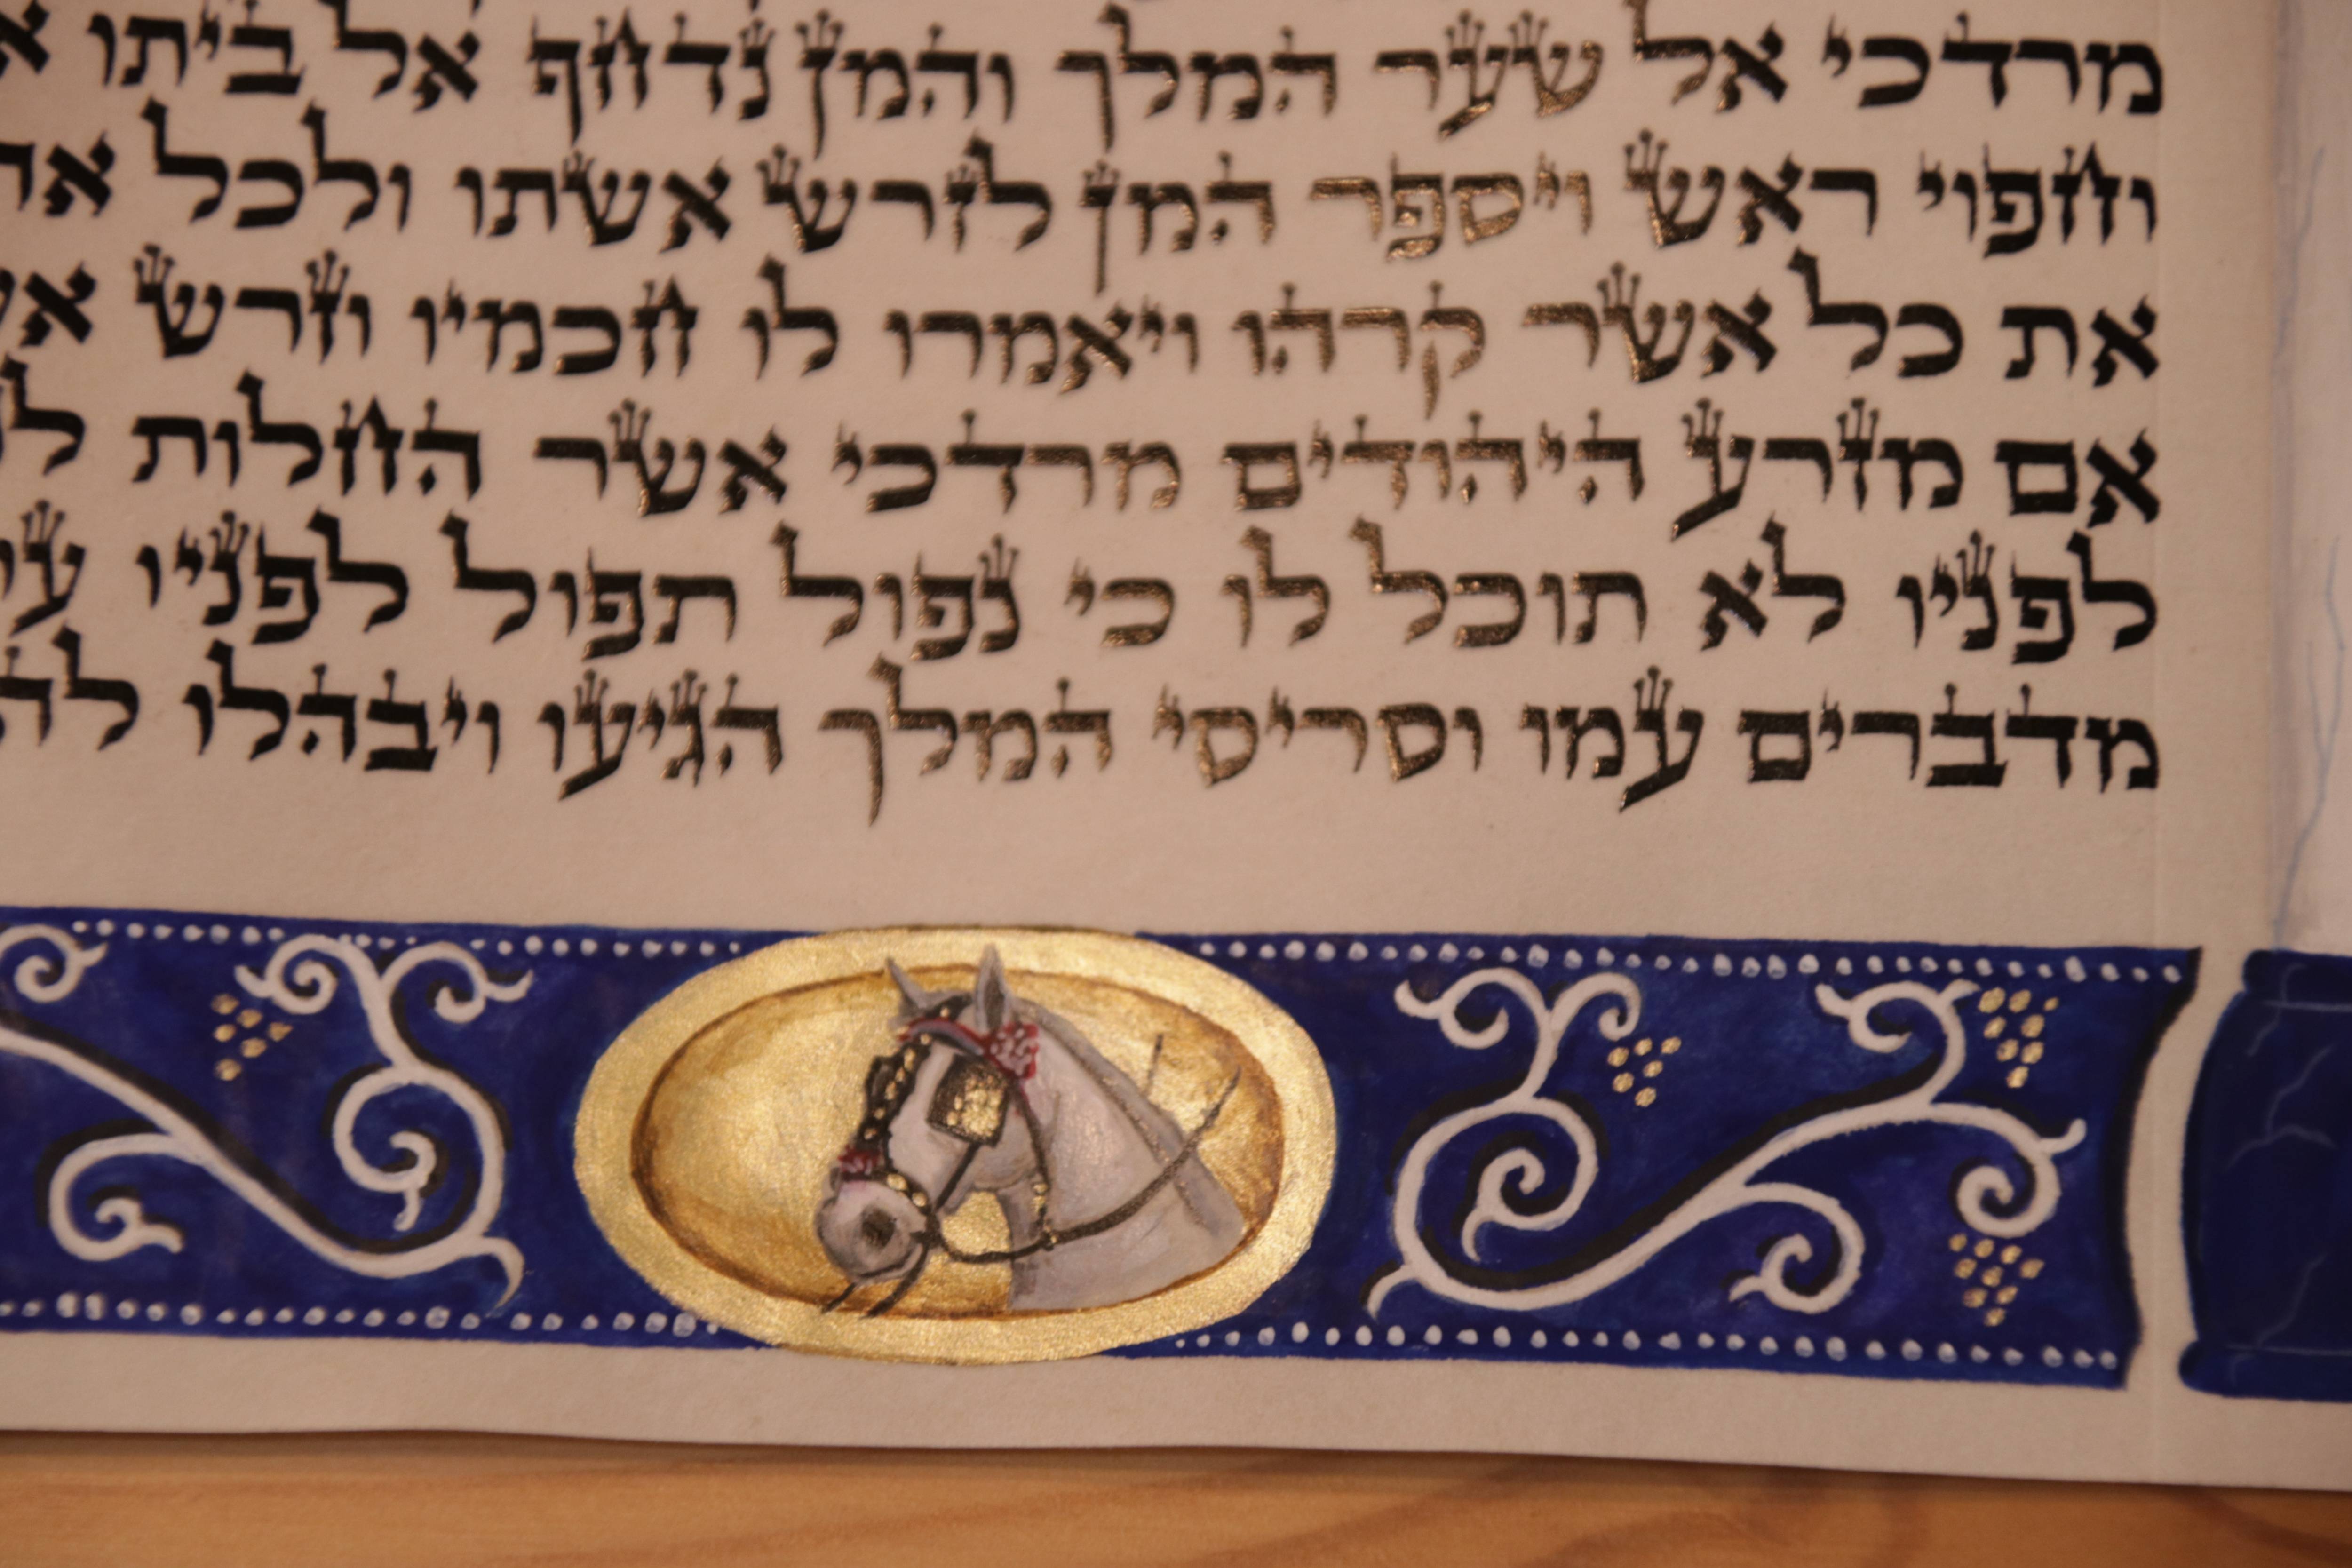 מרדכי אל שער המלך והמן נדחף אל ביתו
וחפוי ראש ויספר המן לזרש אשתו ולכל
את כל אשר קרהו ויאמרו לו חכמיו וזרש
אם מזרע היהודים מרדכי אשר החלות
לפניו לא תוכל לו כי נפול תפול לפניו
מדברים עמו וסריסי המלך הגיעו ויבהלו